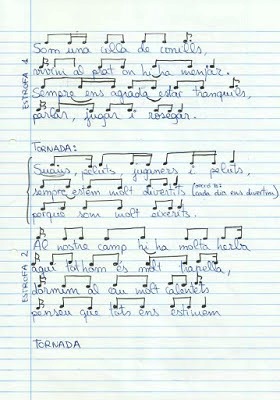 ESTROFA 1
Som una colla de conills,
vivim al prat on hi ha menjar.
Sempre ens agrada estar tranquils,
parlar, jugar i rosegar.
TORNADA:
Suaus, peluts, juganers i peluts,
sempre estem molt divertits (opció B:
cada dia ens divertim)
perquè som molt eixerits.
ESTROFA 2
Al nostre camp hi ha molta herba
aquí tothom és molt trapella,
dormim al cau molt calentets
penseu que tots ens estimem
TORNADA